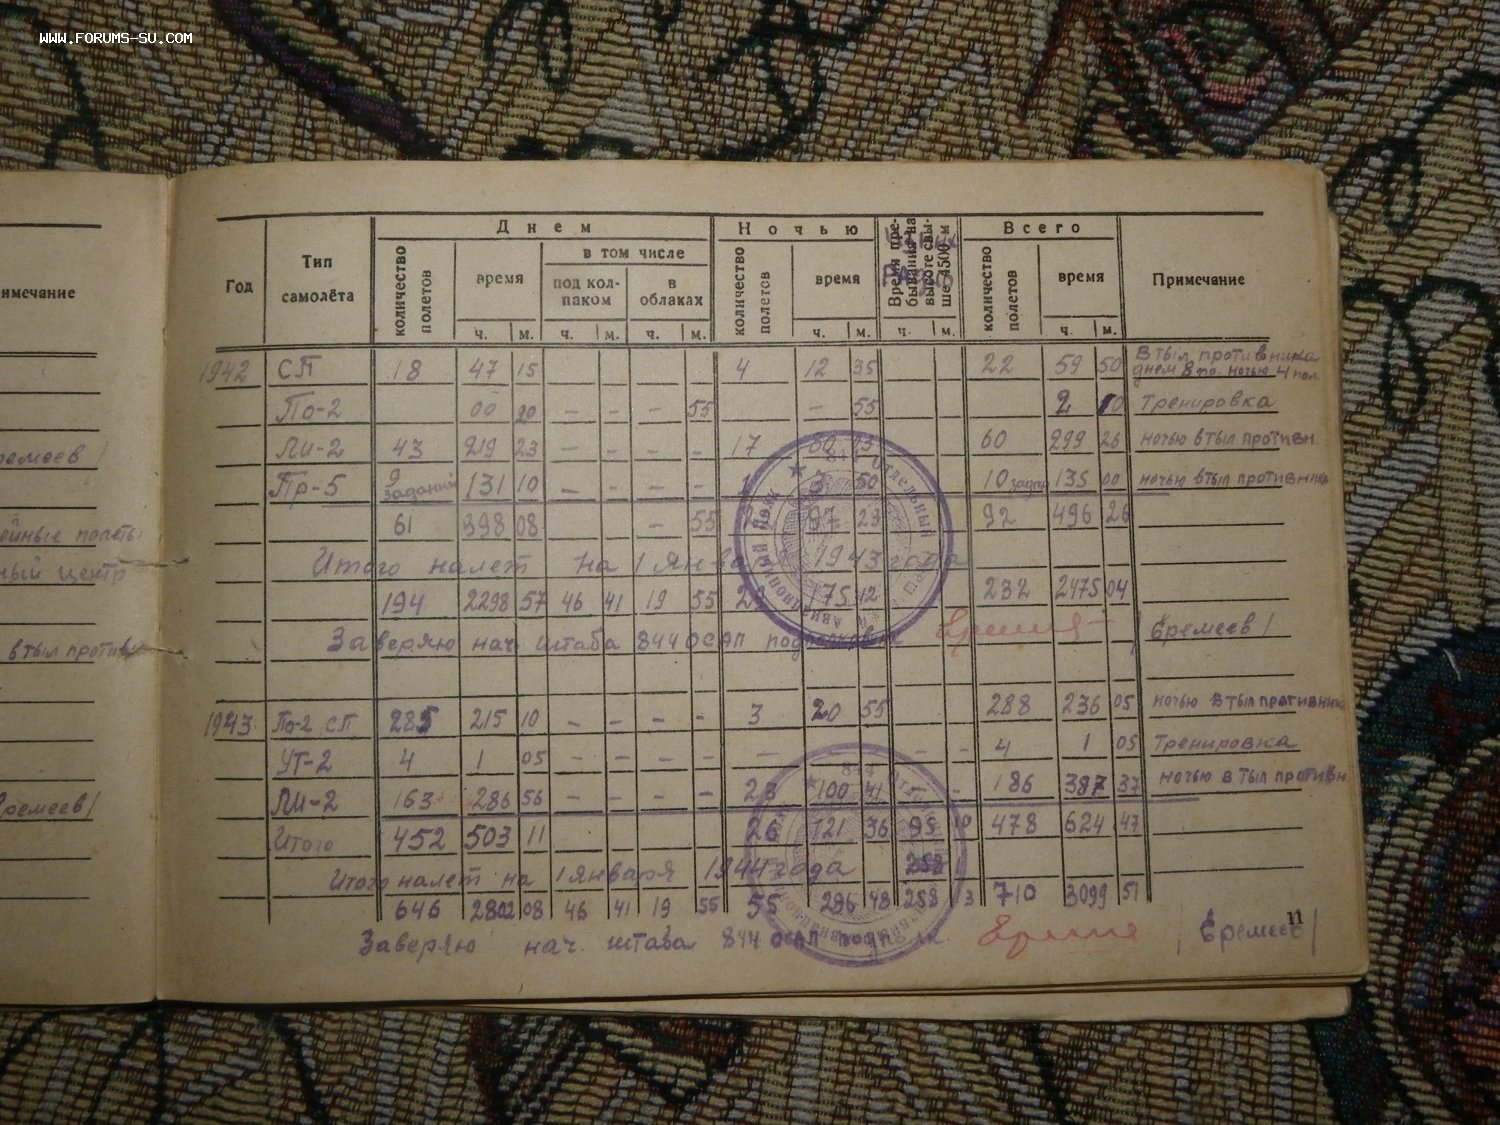 WWW.FORUMS-SU.COM
имечание
Год
Тип самолёта
Днем
количество полетов
время
ч. м.
в том числе
под колпаком
ч. м.
в облаках
ч. м.
Ночью
количество полетов
время
ч. м.
Время пребывания на высоте свыше 4500 м
ч. м.
Всего
количество полетов
время
ч. м.
Примечание
1942 СП 18 47 15 – – – – 4 12 35 22 59 50 В тыл противника днем 8 по. ночью 4 пол.
По-2 00 20 – – – 55 – 55 2 10 Тренировка
Ли-2 43 219 23 – – – – 17 60 299 26 ночью в тыл противн
Пр-5 9 заданий 131 10 – – – – 3 50 10 135 00 ночью в тыл противника
61 398 08 – 55 97 29 92 496 26
Итого налет на 1 января 1943 года
194 2298 57 46 41 19 55 175 12 232 2475 04
Заверяю нач. штаба 844 ОСАП подполковник /Еремеев/
1943. По-2 СП 285 215 10 – – – – 3 20 55 288 236 05 ночью в тыл противника
УТ-2 4 1 05 – – – – – – – – – 4 1 05 Тренировка
Ли-2 163 286 56 – – – – 23 100 41 – – 186 387 37 ночью в тыл противн
Итого 452 503 11 26 121 36 95 10 478 624 47
Итого налет на 1 января 1944 года
646 2802 08 46 41 19 55 55 296 48 258 13 710 3099 51
Заверяю нач. штаба 844 осап подп-к /Еремеев/
11
ремеев/
ейные полеты
ный центр
в тыл против
Еремеев/
844 Отдельный
Авиационный полк
844 Отдельный